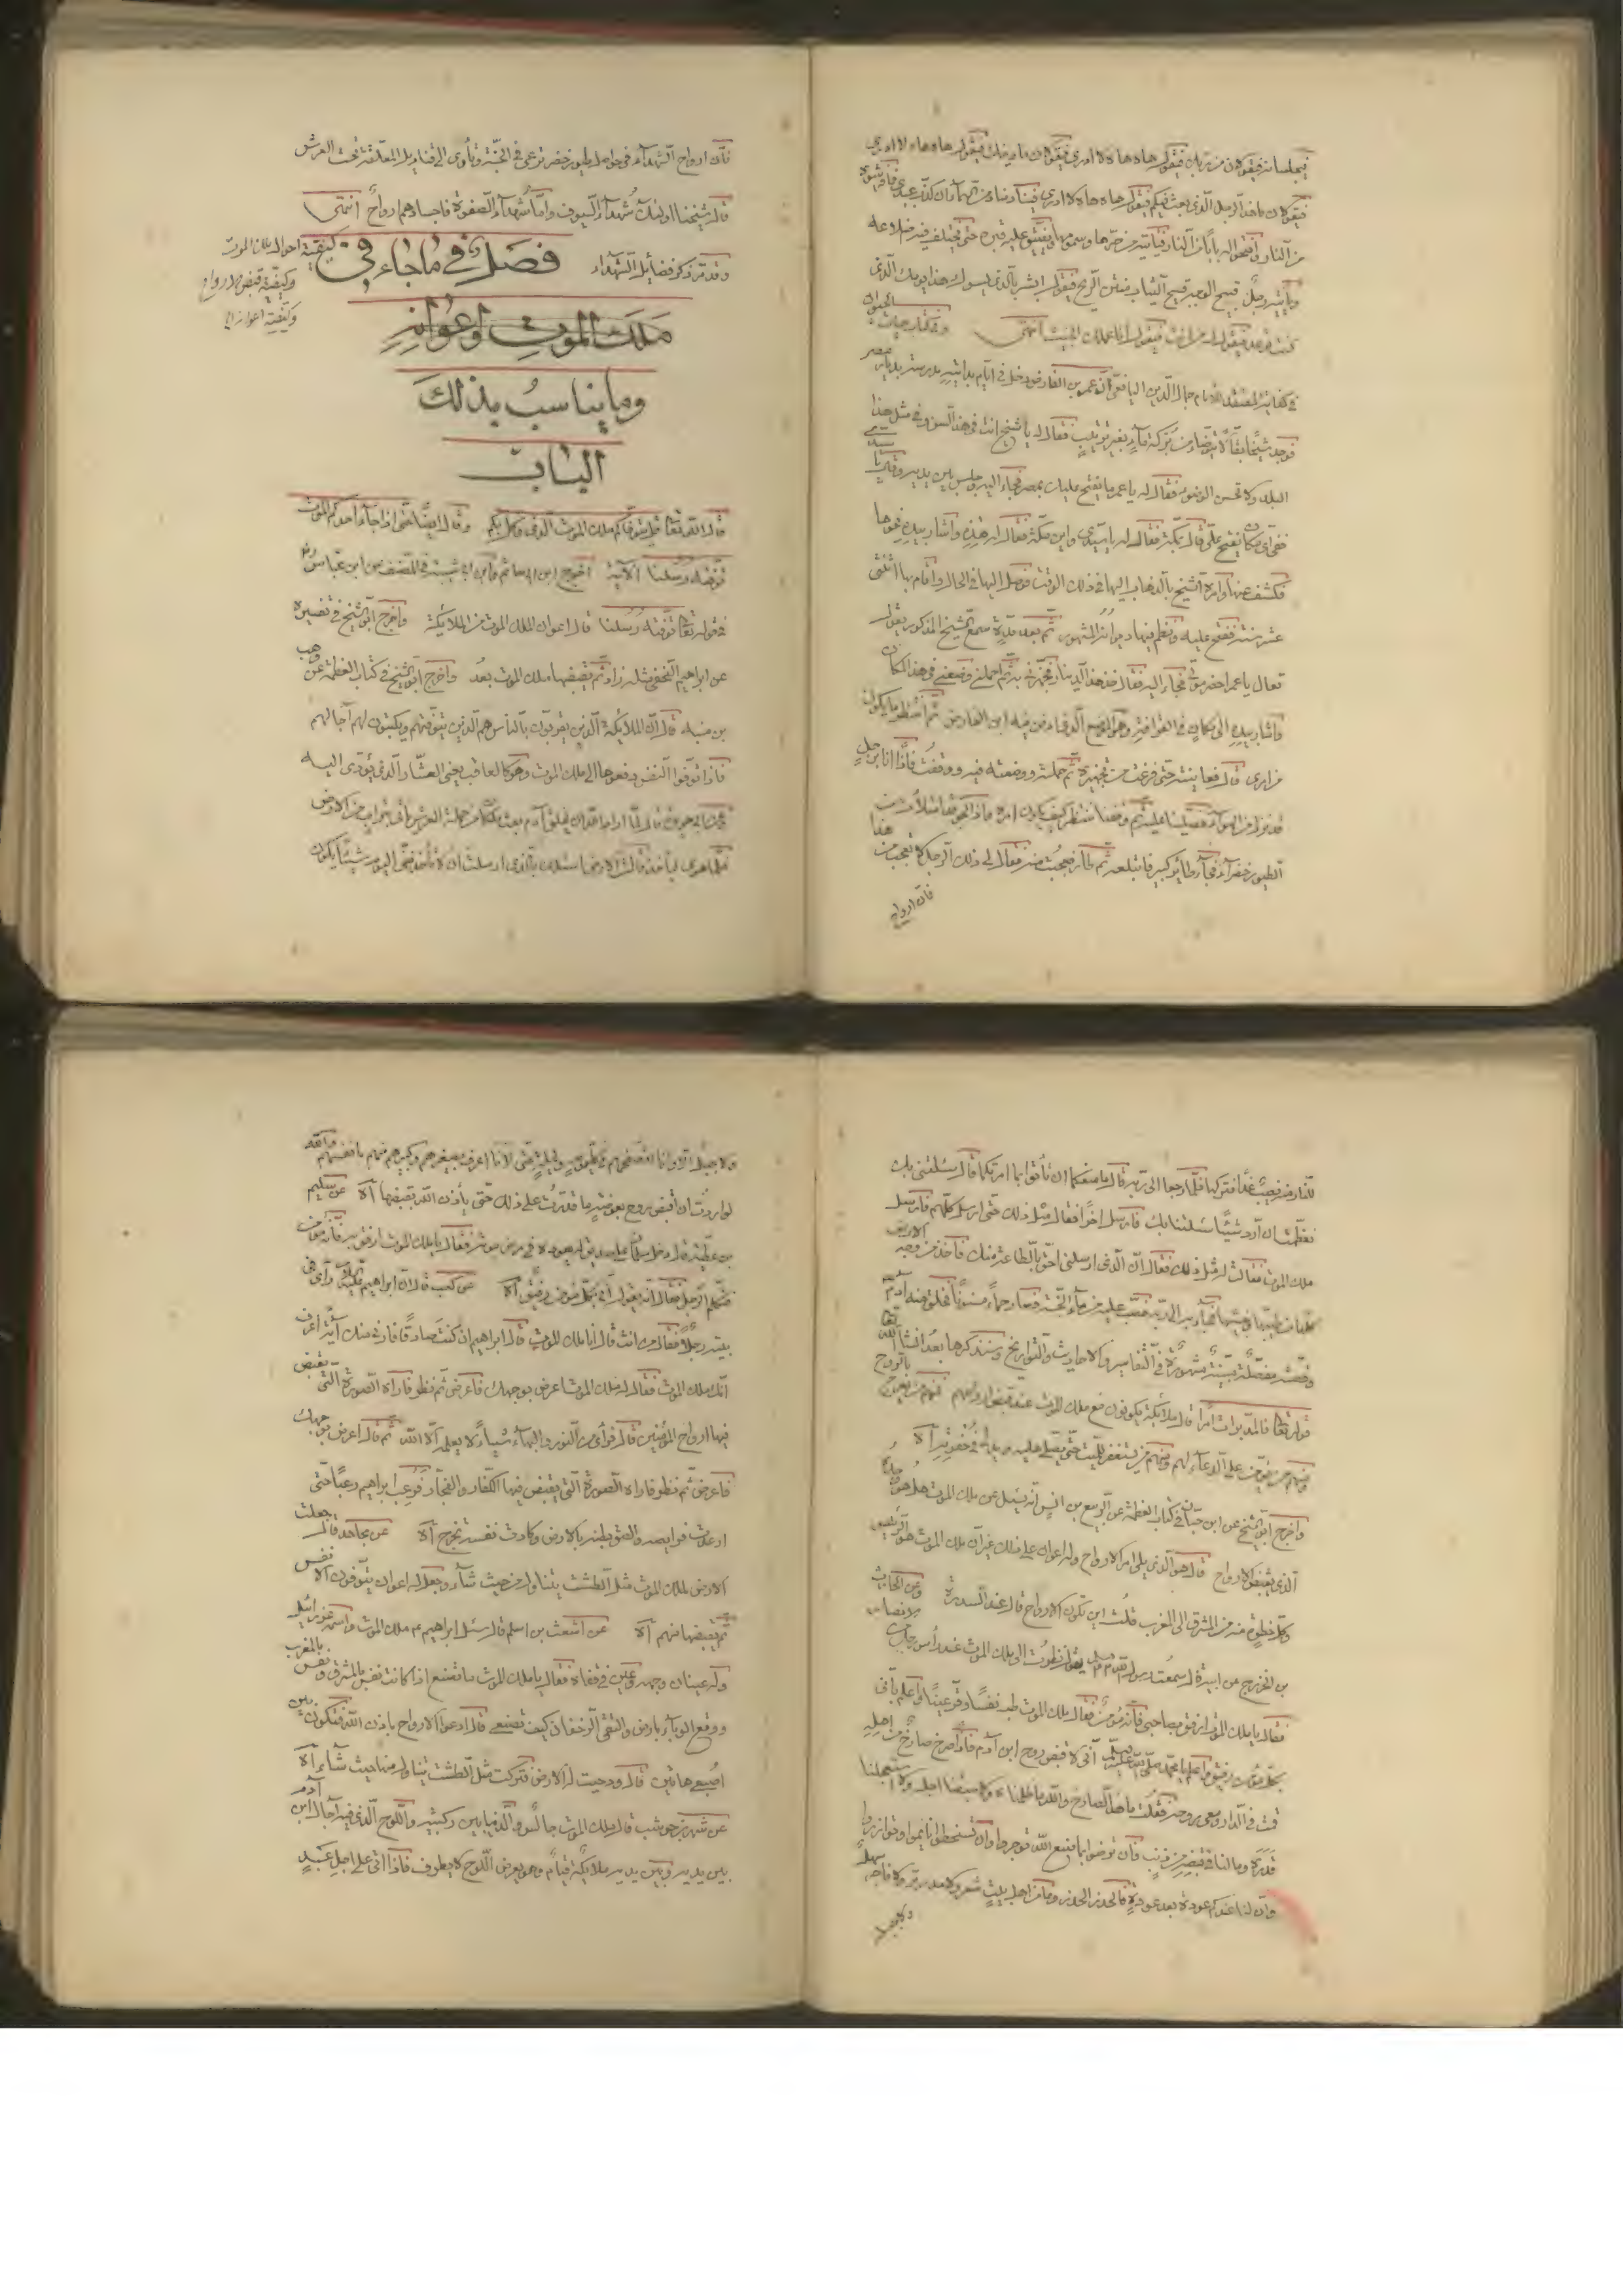 فيجلسانه فيقولان من ربك فيقول هاه هاه لا ادرى فيقولان ما دينك فيقول هاه هاه لا ادرى
فيقولان ما هذا الرجل الذى بعث فيكم فيقول هاه هاه لا ادرى فينادى مناد من السماء ان كذب عبدى فافرشوه
من النار وافتحوا له بابا من النار فياتيه من حرها وسمومها ويضيق عليه قبره حتى تختلف فيه اضلاعه
ويأتيه رجل قبيح الوجه قبيح الثياب منتن الريح فيقول ابشر بالذى يسوءك هذا يومك الذى
كنت توعد فيقول له من انت فيقول انا عملك الخبيث انتهى وفى كتاب حيات الحيوان
فى كفاية المعتقد للامام جمال الدين اليافعى ان عمر بن الفارض دخل فى ايام بدايته مدرسة بديار مصر
فوجد شيخا بقالا يتوضأ من بركة ماء بغير ترتيب فقال له يا شيخ انت فى هذا السن وفى مثل هذا
البلد ولا تحسن الوضوء فقال له يا عمر ما يفتح عليك بمصر فجاء اليه وجلس بين يديه وقال يا سيدى
ففى اى مكان يفتح على قال بمكة فقال له يا سيدى واين مكة فقال له هذه واشار بيده نحوها
فكشف عنها وامره الشيخ بالذهاب اليها فى ذلك الوقت فوصل اليها فى الحال واقام بها اثنتى
عشر سنة ففتح عليه ونظم فيها ديوانه المشهور ثم بعد مدة سمع الشيخ المذكور يقول
تعال يا عمر احضر موتى فجاء اليه فقال خذ هذا الدينار فجهزنى به ثم احملنى وضعنى فى هذا المكان
واشار بيده الى مكان فى القرافة وهو الموضع الذى دفن فيه ابن الفارض ثم انتظر ما يكون
من امرى قال فعاينته حتى فرغت من تجهيزه ثم حملته ووضعته فيه ووقفت فاذا انا برجل
قد نزل من الهواء فصلينا عليه ثم وقفنا ننتظر كيف يكون امره فاذا الجو قد امتلأ من
الطيور خضرا فجآء طائر كبير فابتلعه ثم طار فعجبت منه فقال لى ذلك الرجل لا تعجب من هذا
فان ارواح
فان ارواح الشهدآء فى حواصل طيور خضر ترعى فى الجنة وتأوى الى قناديل معلقة تحت العرش
قال شيخنا اولئك شهدآء السيوف واما شهدآء الصفوة فاجسادهم ارواح انتهى
وقد مر ذكر فضائل الشهداء فصل فى ما جاء فى
كيفية احوال ملك الموت
وكيفية قبض الارواح
وكيفية اعوانه
ملك الموت واعوانه
وما يناسب بذلك
الباب
قال الله تعالى قل يتوفاكم ملك الموت الذى وكل بكم وقال ايضا حتى اذا جآء احدكم الموت
توفته رسلنا الآية اخرج ابن ابى حاتم وابن ابى شيبة فى المصنف عن ابن عباس رض
فى قوله تعالى توفته رسلنا قال اعوان لملك الموت من الملائكة واخرج ابو الشيخ فى تفسيره
عن ابراهيم النخعى مثله زاد ثم يقبضها ملك الموت بعد واخرج ابو الشيخ فى كتاب العظمة عن وهب
بن منبه قال ان الملائكة الذين يقربون بالناس هم الذين يتوفونهم ويكتبون لهم آجالهم
فاذا توفوا النفس دفعوها الى ملك الموت وهو كالعاقب يعنى العشار الذى يؤدى اليه
عن ابى هريرة قال لما اراد الله ان يخلق آدم بعث ملكا من حملة العرش يأتى بتراب من الارض
فلما هوى ليأخذ قالت الارض اسئلك بالذى ارسلك ان لا تأخذ منى اليوم شيئا يكون
للنار منه نصيب غدا فتركها فلما رجع الى ربه قال ما منعك ان تأتى بما امرتك قال سئلتنى بك
فعظمت ان ارد شيئا سئلتنى بك فارسل اخر فقال مثل ذلك حتى ارسل كلهم فارسل
ملك الموت فقالت له مثل ذلك فقال ان الذى ارسلنى احق بالطاعة منك فاخذ من وجه الارض
كلها من طيبها وخبيثها فجآء به الى ربه فصب عليه من مآء الجنة فصار حمأ مسنونا فخلق منه آدم
وقصته مفصلة مبينة مشهورة فى التفاسير والاحاديث والتواريخ وسنذكرها بعد انشآء الله تعالى
قوله تعالى فالمدبرات امرا قال ملائكة يكونون مع ملك الموت عند قبض ارواحهم فمنهم من يعرج بالروح
ومنهم من يؤمن على الدعآء لهم ومنهم من يستغفر للميت حتى يصلى عليه ويدلى فى حفرته آه
واخرج ابو الشيخ عن ابن حبان فى كتاب العظمة عن الربيع بن انس انه سئل عن ملك الموت هل هو وحده
الذى يقبض الارواح قال هو الذى يلى امر الارواح وله اعوان على ذلك غير ان ملك الموت هو الرئيس
وكل خطوة منه من المشرق الى المغرب قلت اين تكون الارواح قال عند السدرة وعن الحارث
بن الخزرج عن ابيه قال سمعت رسول الله صلعم يقول ونظرت الى ملك الموت عند رأس رجل من الانصار
فقال يا ملك الموت ارفق بصاحبى فانه مؤمن فقال ملك الموت طب نفسا وقر عينا واعلم بأنى
بكل مؤمن رفيق واعلم يا محمد صلى الله عليه وسلم انى لاقبض روح ابن آدم فاذا صرخ صارخ من اهله
قمت فى الدار ومعى روحه فقلت ما هذا الصارخ والله ما ظلمناه ولا سبقنا اجله ولا استعجلنا
قدره وما لنا فى قبضه من ذنب فان ترضوا بما صنع الله توجروا وان تسخطوا تأثموا وتوزروا
وان لنا عندكم عودة بعد عودة فالحذر الحذر وما من اهل بيت شعر ولا مدر بر ولا فاجر سهل
ولا جبل
ولا جبل الا وانا اتصفحهم فى كل يوم وليلة حتى لانا اعرف بصغيرهم وكبيرهم منهم بانفسهم والله
لو اردت ان اقبض روح بعوضة ما قدرت على ذلك حتى يأذن الله بقبضها آه عن سليم
بن عطية قال دخل سلمان على صديق له يعوده فى مرض موته فقال يا ملك الموت ارفق به فانه مؤمن
فتكلم الرجل فقال انه يقول انى بكل مؤمن رفيق آه عن كعب قال ان ابراهيم رأى فى
بيته رجلا فقال من انت قال انا ملك الموت قال ابراهيم ان كنت صادقا فارنى منك آية اعرف
انك ملك الموت فقال له ملك الموت اعرض بوجهك فاعرض ثم نظر فاراه الصورة التى يقبض
فيها ارواح المؤمنين قال فرأى من النور والبهآء شيئا لا يعلمه الا الله ثم قال اعرض بوجهك
فاعرض ثم نظر فاراه الصورة التى يقبض فيها الكفار والفجار فرعب ابراهيم رعبا حتى
ارعدت فرايصه والصق بطنه بالارض وكادت نفسه تخرج آه عن مجاهد قال جعلت
الارض لملك الموت مثل الطشت يتناول من حيث شآء وجعل له اعوان يتوفون الانفس
ثم يقبضها منهم آه عن اشعث بن اسلم قال سئل ابراهيم عم ملك الموت واسمه عزرائيل
وله عينان فى وجهه وعين فى قفاه فقال يا ملك الموت ما تصنع اذا كانت نفس بالمشرق ونفس بالمغرب
ووقع الوبآء بارض والتقى الزحفان كيف تصنع قال ادعو الارواح باذن الله فتكون بين
اصبعى هاتين قال ودحيت له الارض فتركت مثل الطشت يتناول منها حيث شآء آه
عن شهر بن حوشب قال ملك الموت جالس والدنيا بين ركبتيه واللوح الذى فيه آجال ابن آدم
بين يديه وبين يديه ملائكة قيام وهو يعرض اللوح لا يطرف فاذا اتى على اجل عبد